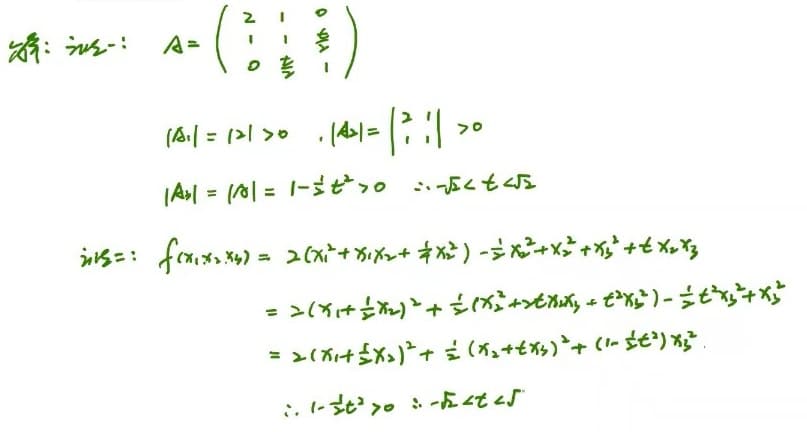 解: 法一: A = ( 2 1 0
1 1 t/2
0 t/2 1 )
|A₁| = |2| > 0 , |A₂| = | 2 1 | > 0
1 1
|A₃| = |A| = 1 - 1/2 t² > 0 ∴ -√2 < t < √2
法二: f(x₁ x₂ x₃) = 2(x₁² + x₁x₂ + 1/4 x₂²) - 1/2 x₂² + x₂² + x₃² + t x₂ x₃
= 2(x₁ + 1/2 x₂)² + 1/2 (x₂² + 2t x₂x₃ + t² x₃²) - 1/2 t² x₃² + x₃²
= 2(x₁ + 1/2 x₂)² + 1/2 (x₂ + t x₃)² + (1 - 1/2 t²) x₃² .
∴ 1 - 1/2 t² > 0 ∴ -√2 < t < √